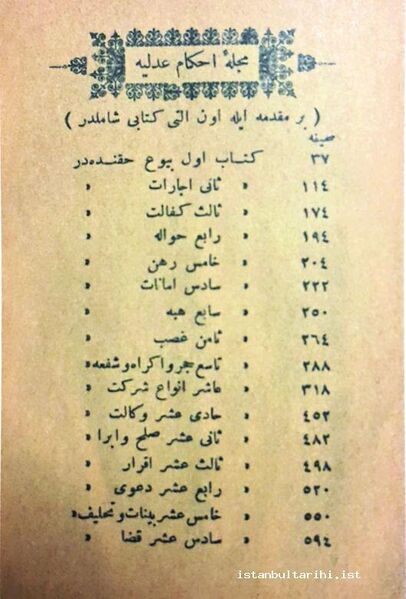 مجلهٔ احکام عدلیه
( بر مقدمه ایله اون التی کتابی شاملدر )
صحیفه
٣٧ کتاب اول بیوع حقنده‌در
١١٤ » ثانی اجارات »
١٧٤ » ثالث کفالت »
١٩٤ » رابع حواله »
٢٠٤ » خامس رهن »
٢٢٢ » سادس امانات »
٢٥٠ » سابع هبه »
٢٦٤ » ثامن غصب »
٢٨٨ » تاسع حجر و اکراه و شفعه »
٣١٨ » عاشر انواع شرکت »
٤٥٢ » حادی عشر وکالت »
٤٨٢ » ثانی عشر صلح و ابرا »
٤٩٨ » ثالث عشر اقرار »
٥٢٠ » رابع عشر دعوی »
٥٥٠ » خامس عشر بینات و تحلیف »
٥٩٤ » سادس عشر قضا »
istanbultarihi.ist